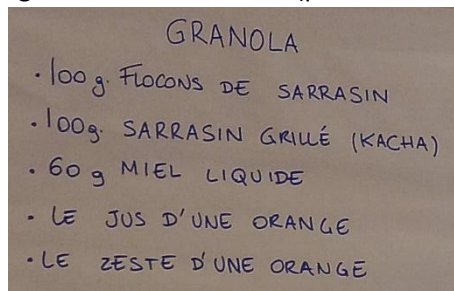 GRANOLA
· 100 g. FLOCONS DE SARRASIN
· 100g. SARRASIN GRILLÉ (KACHA)
· 60 g MIEL LIQUIDE
· LE JUS D'UNE ORANGE
· LE ZESTE D'UNE ORANGE